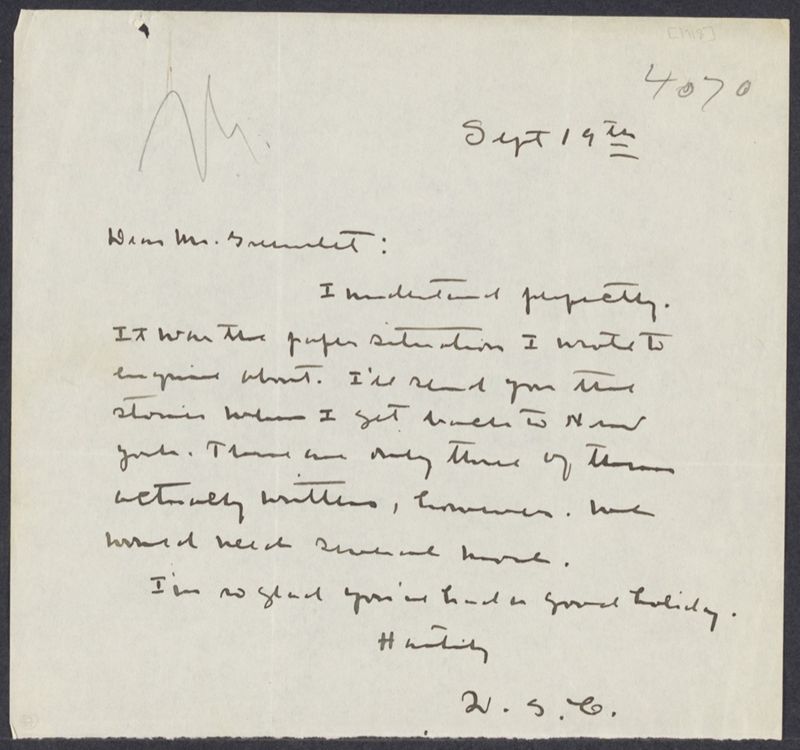 [1918]
4070
Sept 19th
Dear Mr. Greenslet:
I understand perfectly.
It was the paper situation I wrote to
enquire about. I'll send you the
stories when I get back to New
York. There are only three of them
actually written, however. We
would need several more.
I'm so glad you've had a good holiday.
Hastily
W. S. C.